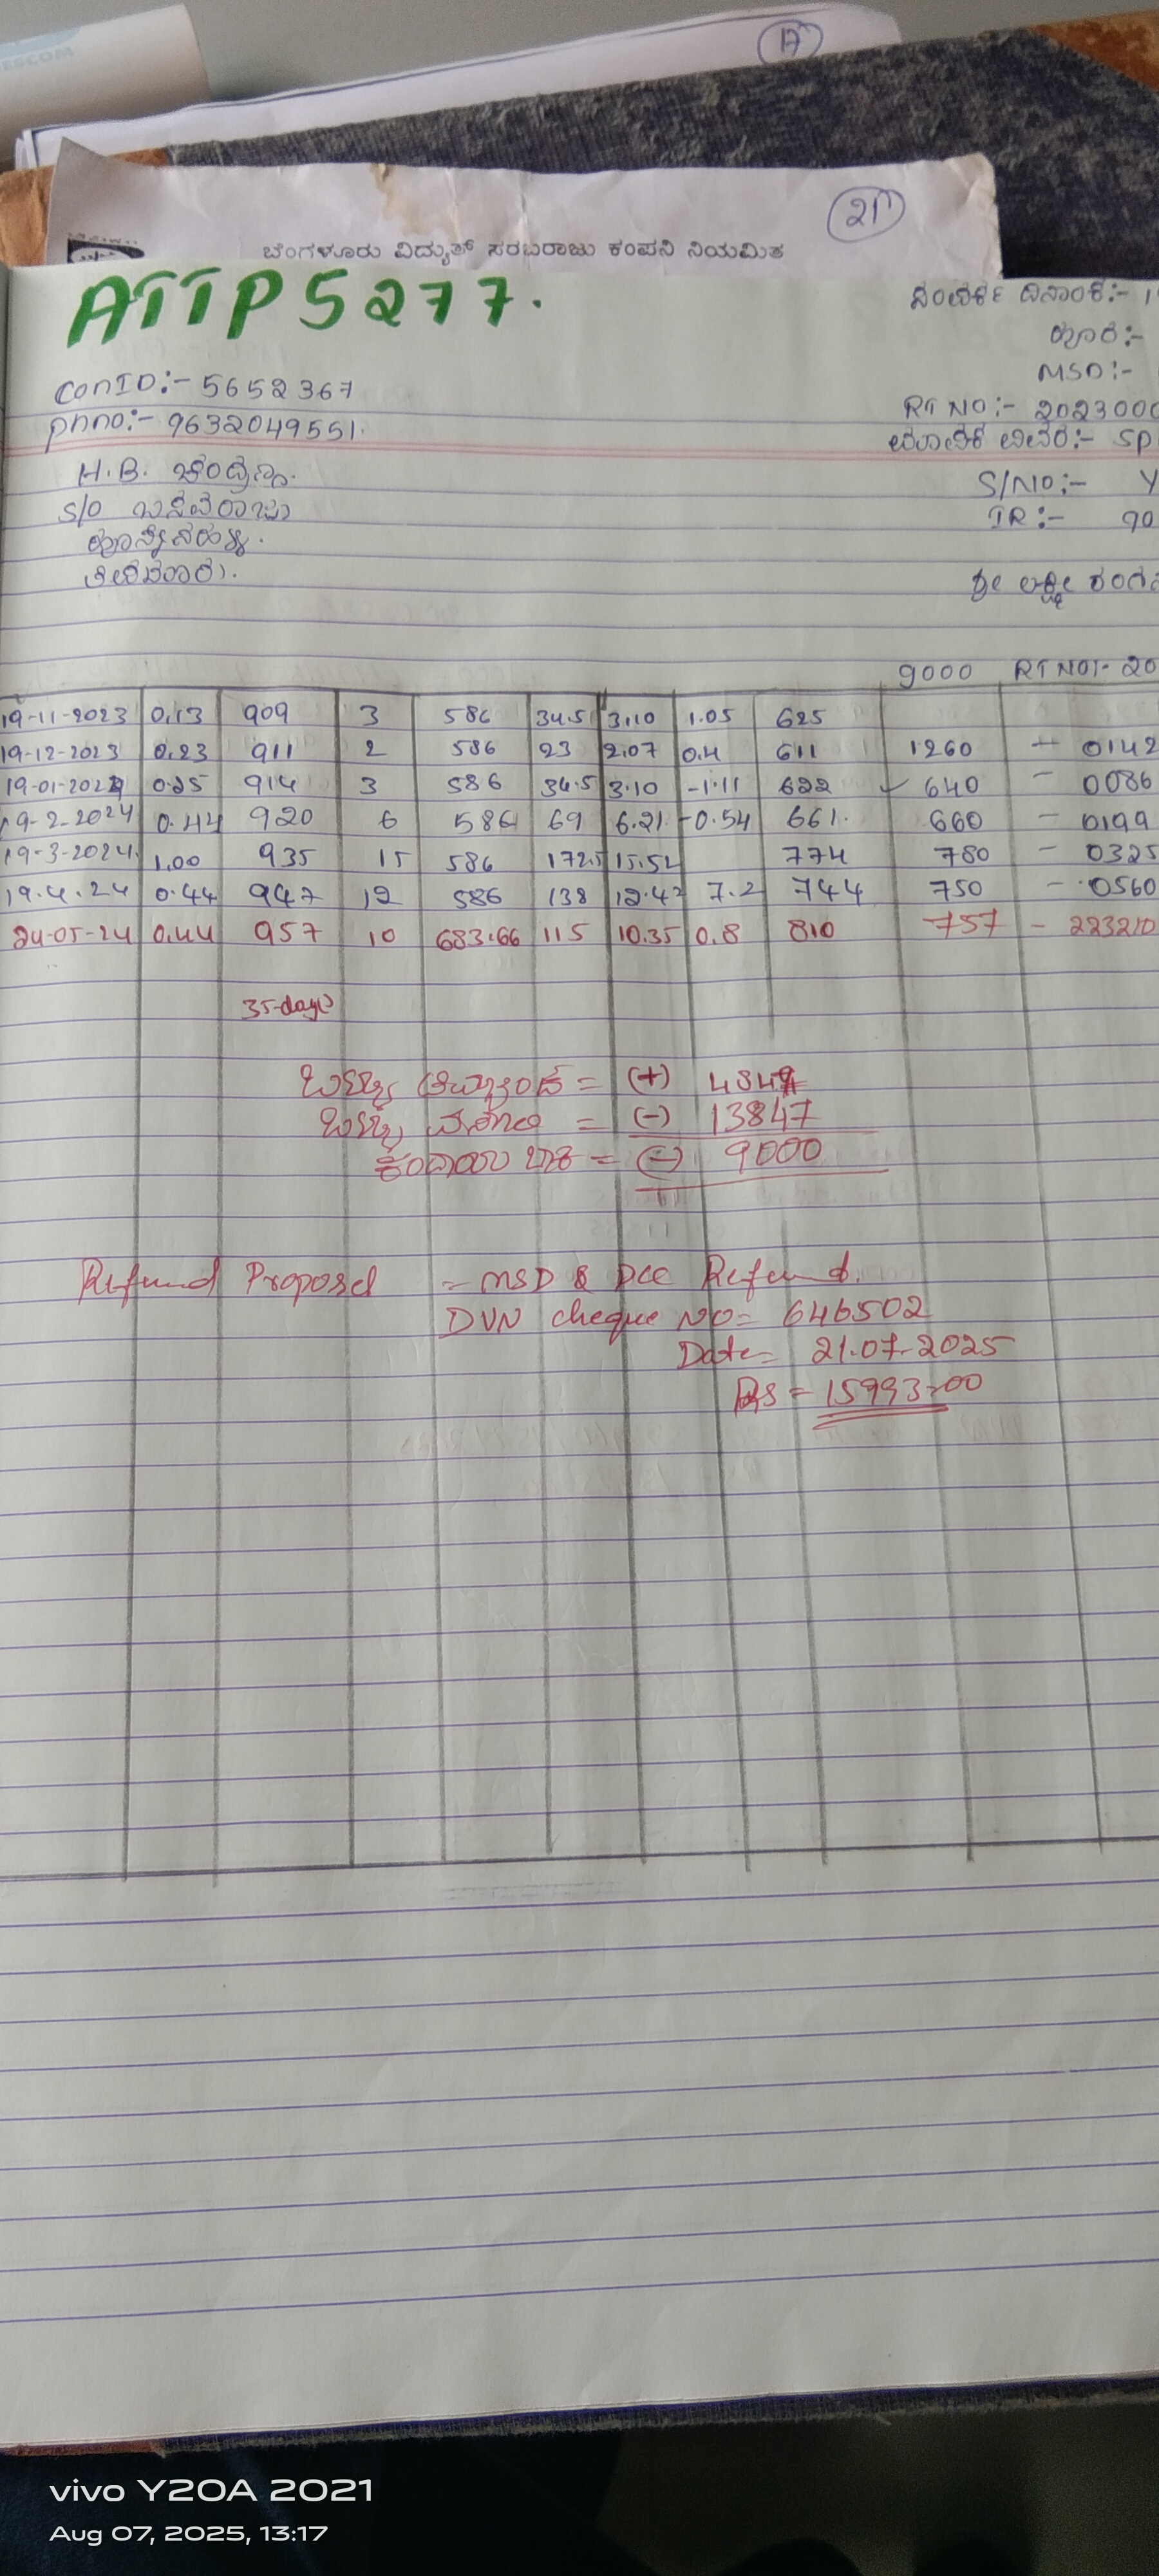 BESCOM
17
21
ಬೆಂಗಳೂರು ವಿದ್ಯುತ್ ಸರಬರಾಜು ಕಂಪನಿ ನಿಯಮಿತ
ATTP5277.
ConID:- 5652367
phno:- 9632049551.
H.B.
S/O ಬಸವರಾಜು
MSD:-
RT NO:- 2023000
SP
S/NO:- Y
IR:- 90
ಶ್ರೀ ಲಕ್ಷ್ಮೀ
9000 RT NO:- 20
19-11-2023 0.13 909 3 586 34.5 3.10 1.05 625
19-12-2023 0.23 911 2 586 23 2.07 0.4 611 1260 - 0142
19-01-2024 0.25 914 3 586 34.5 3.10 -1.11 622 640 - 0086
19-2-2024 0.44 920 6 586 69 6.21 -0.54 661. 660 - 0199
19-3-2024. 1.00 935 15 586 172.5 15.52 774 780 - 0325
19.4.24 0.44 947 12 586 138 12.42 7.2 744 750 - 0560
24-05-24 0.44 957 10 683.66 115 10.35 0.8 810 757 - 223210
35-days
= (+) 4847
= (-) 13847
ಕಂದಾಯ ಬಾಕಿ = (-) 9000
Refund Proposel = MSD & DCC Refund.
DVN cheque NO= 646502
Date= 21.07.2025
Rs = 15993=00
vivo Y20A 2021
Aug 07, 2025, 13:17